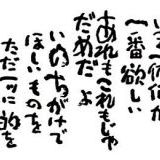 一体何が
一番欲しい
あれもこれもじゃ
だめだよ
いのちがけで
ほしいものを
ただ一ツに的を